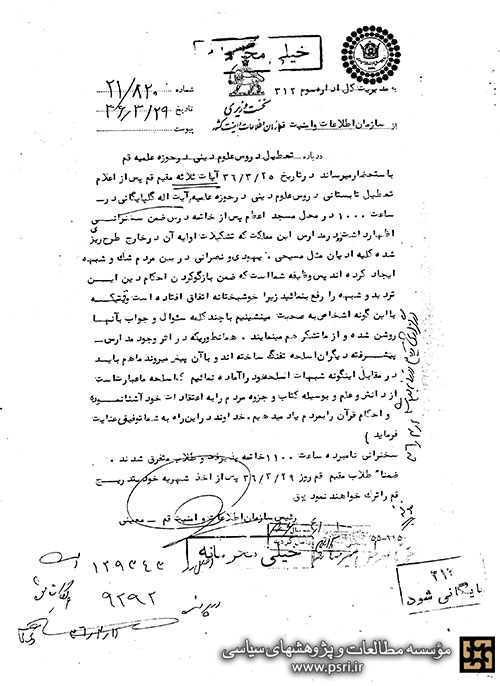 خیلی محرمانه
به مدیریت کل اداره سوم ۳۱۲
شماره ۲۱/۸۲۰
نخست وزیری
تاریخ ۳۶/۳/۲۹
از سازمان اطلاعات و امنیت قم
سازمان اطلاعات و امنیت کشور
پیوست
درباره تعطیل دروس علوم دینی در حوزه علمیه قم
باستحضار میرساند در تاریخ ۳۶/۳/۲۵ آیات ثلاثه مقیم قم پس از اعلام
تعطیل تابستانی دروس علوم دینی در حوزه علمیه، آیت اله گلپایگانی در
ساعت ۱۰۰۰ در محل مسجد اعظم پس از خاتمه درس ضمن سخنرانی
اظهار داشت در مدارس این مملکت که تشکیلات اولیه آن در خارج طرح ریزی
شده کلیه ادیان مثل مسیحی یهودی و نصرانی در بین مردم شك و شبهه
ایجاد کرده اند پس وظیفه شما است که ضمن بازگو کردن احکام دین این
تردید و شبهه را رفع بنمائید زیرا خوشبختانه اتفاق افتاده است وقتیکه
با این گونه اشخاص به صحبت مینشینیم با چند کلمه سئوال و جواب با آنها
روشن شده و از ما تشکر هم مینمایند. همانطوریکه در اثر وجود مدارس
پیشرفته دیگران اسلحه تفنگ ساخته اند و با آن پیش میروند ما هم باید
در مقابل اینگونه شبهات اسلحه خود را آماده نمائیم که اسلحه ما عبارتست
از دانش و علم و بوسیله کتاب و جزوه مردم را به اعتقادات خود آشنا نموده
و احکام قرآن را بمردم یاد میدهیم. خداوند در این راه به شما توفیق عنایت
فرماید)
سخنرانی نامبرده ساعت ۱۱۰۰ خاتمه پذیرفت و طلاب متفرق شدند.
ضمنا طلاب مقیم قم روز ۳۶/۳/۲۹ پس از اخذ شهریه خود بتدریج
قم را ترك خواهند نمود
رئیس سازمان اطلاعات و امنیت قم - معینی
خیلی محرمانه
۵۵-۲۲۵
۳۱۲
بایگانی شود
۱۲۹۳۴۳
۹۲۹۲
مؤسسه مطالعات و پژوهشهای سیاسی
www.psri.ir